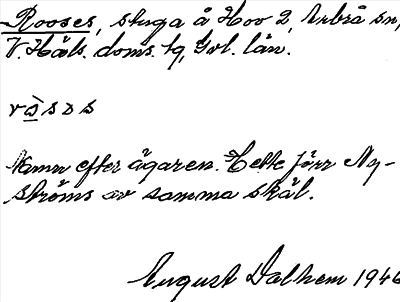 Rooses, stuga å Hov 2, Arbrå sn,
V. Häls. doms. tg, Gvl. län.
ròsɔs
Namn efter ägaren. Hette förr Ny-
ströms av samma skäl.
August Dalhem 1946